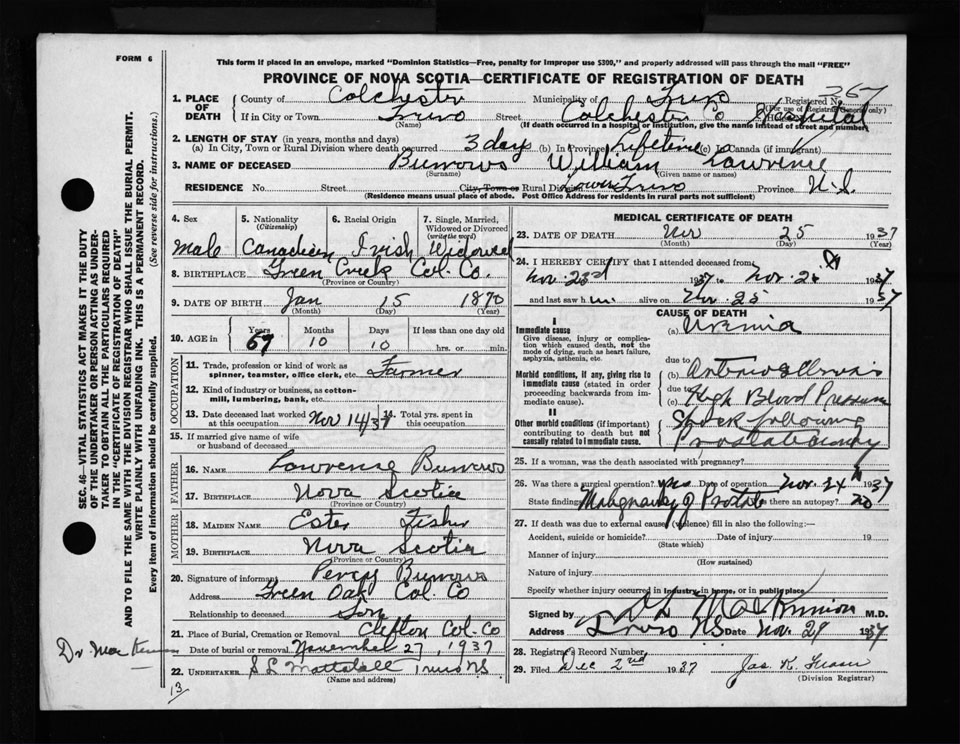 FORM 6
This form if placed in an envelope, marked "Dominion Statistics—Free, penalty for improper use $300," and properly addressed will pass through the mail "FREE"
PROVINCE OF NOVA SCOTIA—CERTIFICATE OF REGISTRATION OF DEATH
367
1. PLACE OF DEATH County of Colchester Municipality of Truro Registered No.
(For use of Registrar General only)
If in City or Town Truro Street Colchester Co Hospital
(Name) (If death occurred in a hospital or institution, give the name instead of street and number)
2. LENGTH OF STAY (in years, months and days)
(a) In City, Town or Rural Division where death occurred 3 days (b) In Province Lifetime (c) In Canada (if immigrant)
3. NAME OF DECEASED Burrows William Lawrence
(Surname) (Given name or names)
RESIDENCE No. Street City, Town or Rural Division Lower Truro Province N.S.
(Residence means usual place of abode. Post Office Address for residents in rural parts not sufficient)
4. Sex 5. Nationality (Citizenship) 6. Racial Origin 7. Single, Married, Widowed or Divorced (write the word)
male Canadian Irish Widowed
8. BIRTHPLACE Green Creek Col. Co.
(Province or Country)
9. DATE OF BIRTH Jan 15 1870
(Month) (Day) (Year)
10. AGE in Years 67 Months 10 Days 10 If less than one day old
hrs. or min.
OCCUPATION
11. Trade, profession or kind of work as spinner, teamster, office clerk, etc. Farmer
12. Kind of industry or business, as cotton-mill, lumbering, bank, etc.
13. Date deceased last worked at this occupation Nov 14/37 14. Total yrs. spent in this occupation
15. If married give name of wife or husband of deceased
FATHER
16. NAME Lawrense Burrows
17. BIRTHPLACE Nova Scotia
(Province or Country)
MOTHER
18. MAIDEN NAME Ester Fisher
19. BIRTHPLACE Nova Scotia
(Province or Country)
20. Signature of informant Percy Burrows
Address Green Oak Col. Co
Relationship to deceased Son
21. Place of Burial, Cremation or Removal Clifton Col. Co
Date of burial or removal November 27, 1937
22. UNDERTAKER S L Mattatall Truro NS
(Name and address)
MEDICAL CERTIFICATE OF DEATH
23. DATE OF DEATH Nov 25 1937
(Month) (Day) (Year)
24. I HEREBY CERTIFY that I attended deceased from
Nov. 23rd 1937 to Nov. 25 1937
and last saw h im alive on Nov. 25 1937
CAUSE OF DEATH
I
Immediate cause (a) Uremia
Give disease, injury or complication which caused death, not the mode of dying, such as heart failure, asphyxia, asthenia, etc.
due to
Morbid conditions, if any, giving rise to immediate cause (stated in order proceeding backwards from immediate cause). (b)
due to
(c) High Blood Pressure
II
Other morbid conditions (if important) contributing to death but not causally related to immediate cause. Shock following
25. If a woman, was the death associated with pregnancy?
26. Was there a surgical operation? yes Date of operation Nov. 24 1937
State finding Malignancy of Prostate Was there an autopsy? no
27. If death was due to external causes (violence) fill in also the following:—
Accident, suicide or homicide? Date of injury 19
(State which)
Manner of injury
(How sustained)
Nature of injury
Specify whether injury occurred in Industry, in home, or in public place
Signed by M.D.
Address Truro NS Date Nov. 29 1937
28. Registrar's Record Number
29. Filed Dec 2nd 1937 Jas. K. Fraser
(Division Registrar)
SEC. 46—VITAL STATISTICS ACT MAKES IT THE DUTY
OF THE UNDERTAKER OR PERSON ACTING AS UNDER-
TAKER TO OBTAIN ALL THE PARTICULARS REQUIRED
IN THE "CERTIFICATE OF REGISTRATION OF DEATH"
AND TO FILE THE SAME WITH THE DIVISION REGISTRAR WHO SHALL ISSUE THE BURIAL PERMIT.
WRITE PLAINLY WITH UNFADING INK. THIS IS A PERMANENT RECORD.
Every item of Information should be carefully supplied. (See reverse side for instructions.)
13